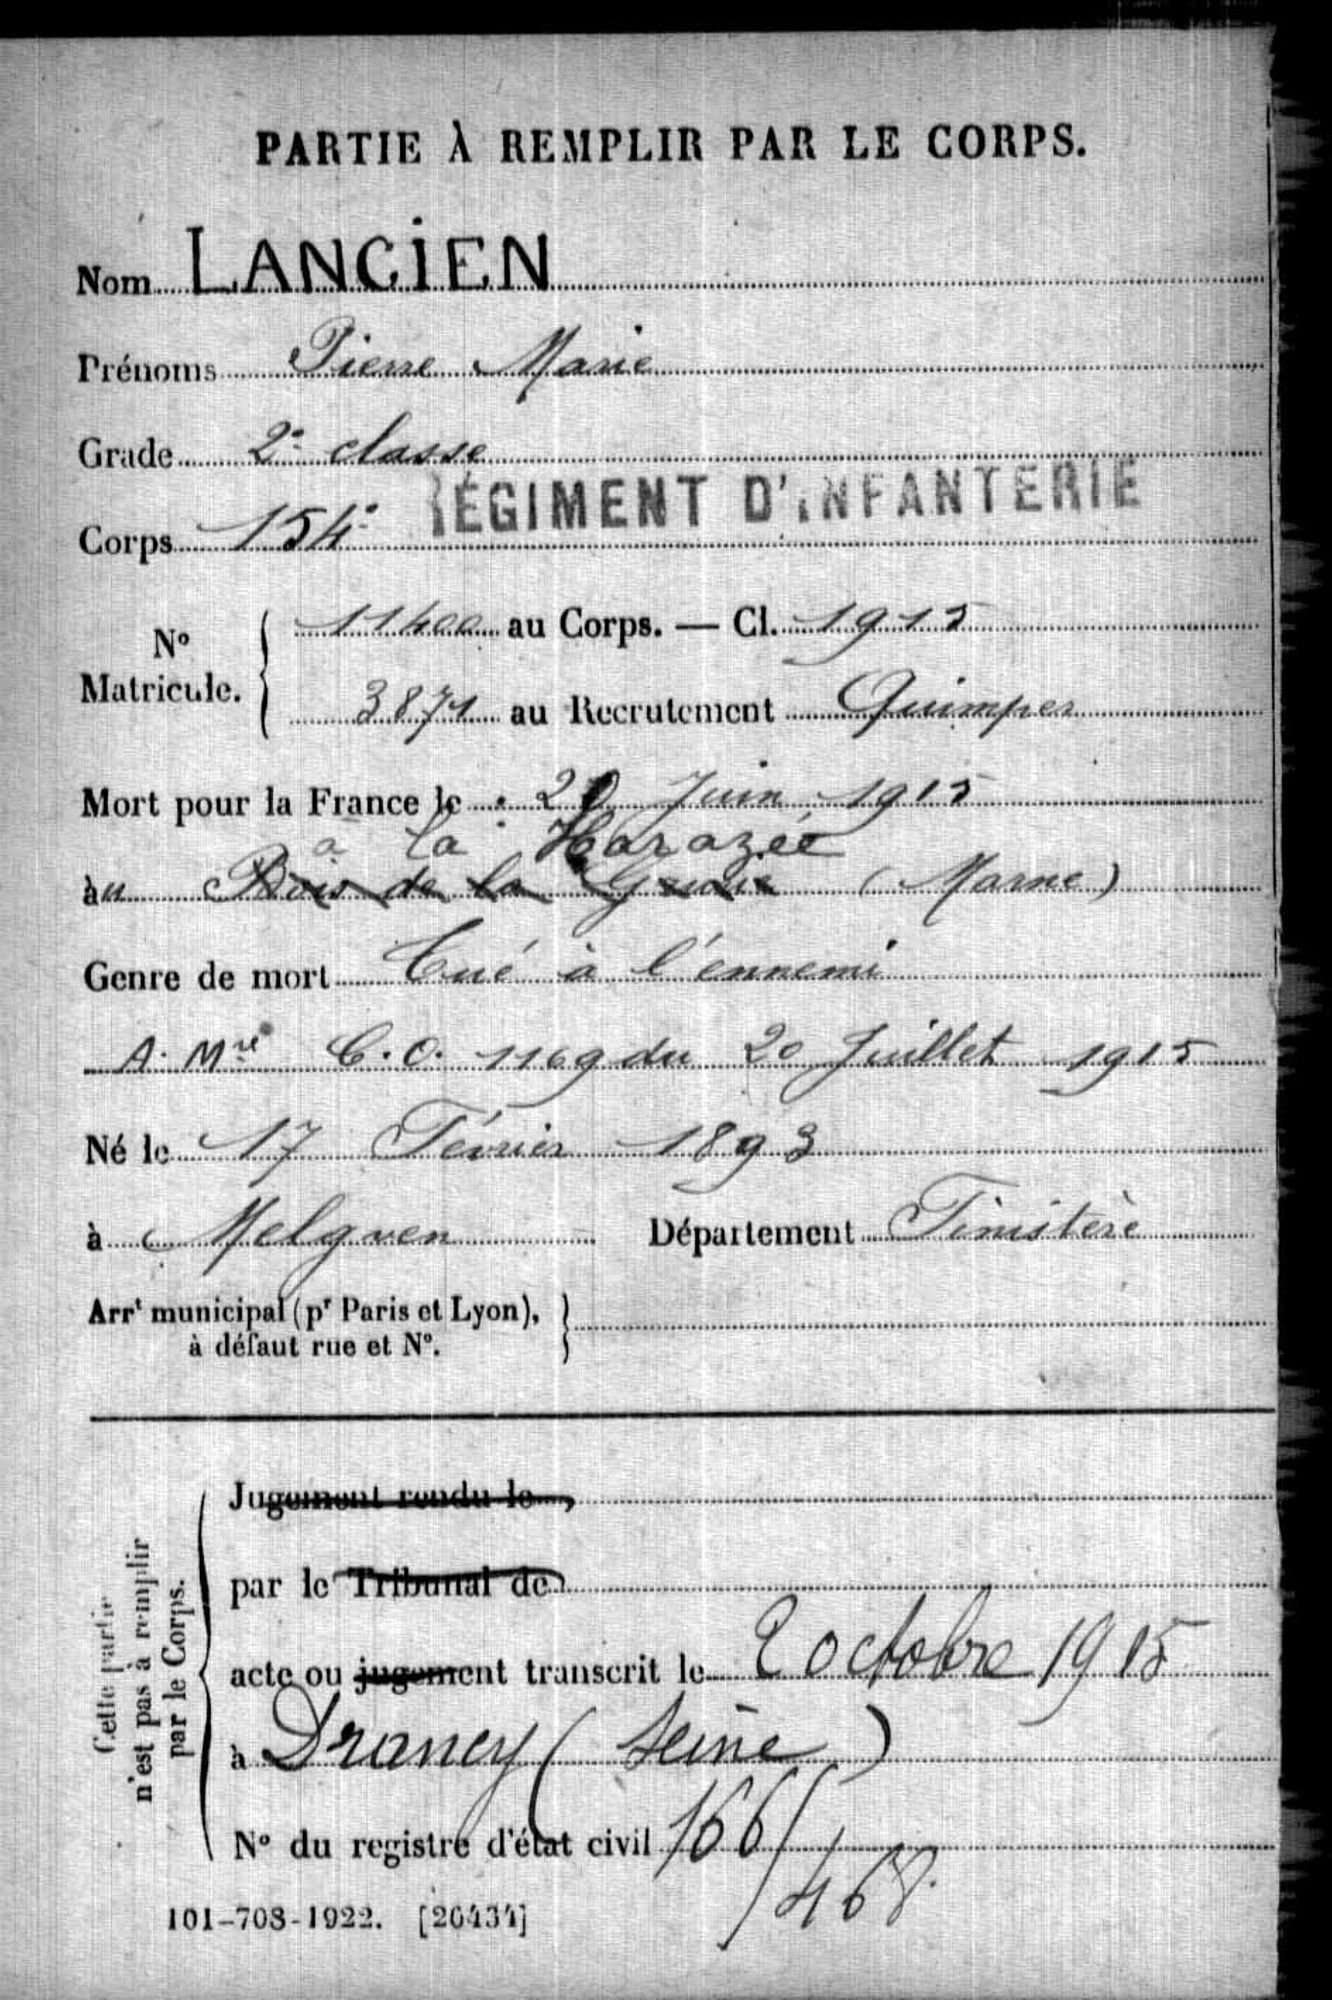 PARTIE À REMPLIR PAR LE CORPS.
Nom LANCIEN
Prénoms Pierre Marie
Grade 2e classe
Corps 154e RÉGIMENT D'INFANTERIE
No Matricule. 11400 au Corps. — Cl. 1915
3871 au Recrutement Quimper
Mort pour la France le 20 Juin 1915
à la Harazée
au Bois de la Grurie (Marne)
Genre de mort Tué à l'ennemi
A. Mre C.O. 1169 du 20 Juillet 1915
Né le 17 Févrièr 1893
à Melgven Département Finistère
Arrt municipal (pr Paris et Lyon),
à défaut rue et No.
Cette partie n'est pas à remplir par le Corps.
Jugement rendu le
par le Tribunal de
acte ou jugement transcrit le 2 octobre 1915
à Drancy (Seine)
No du registre d'état civil 166/468
101-708-1922. [26434]